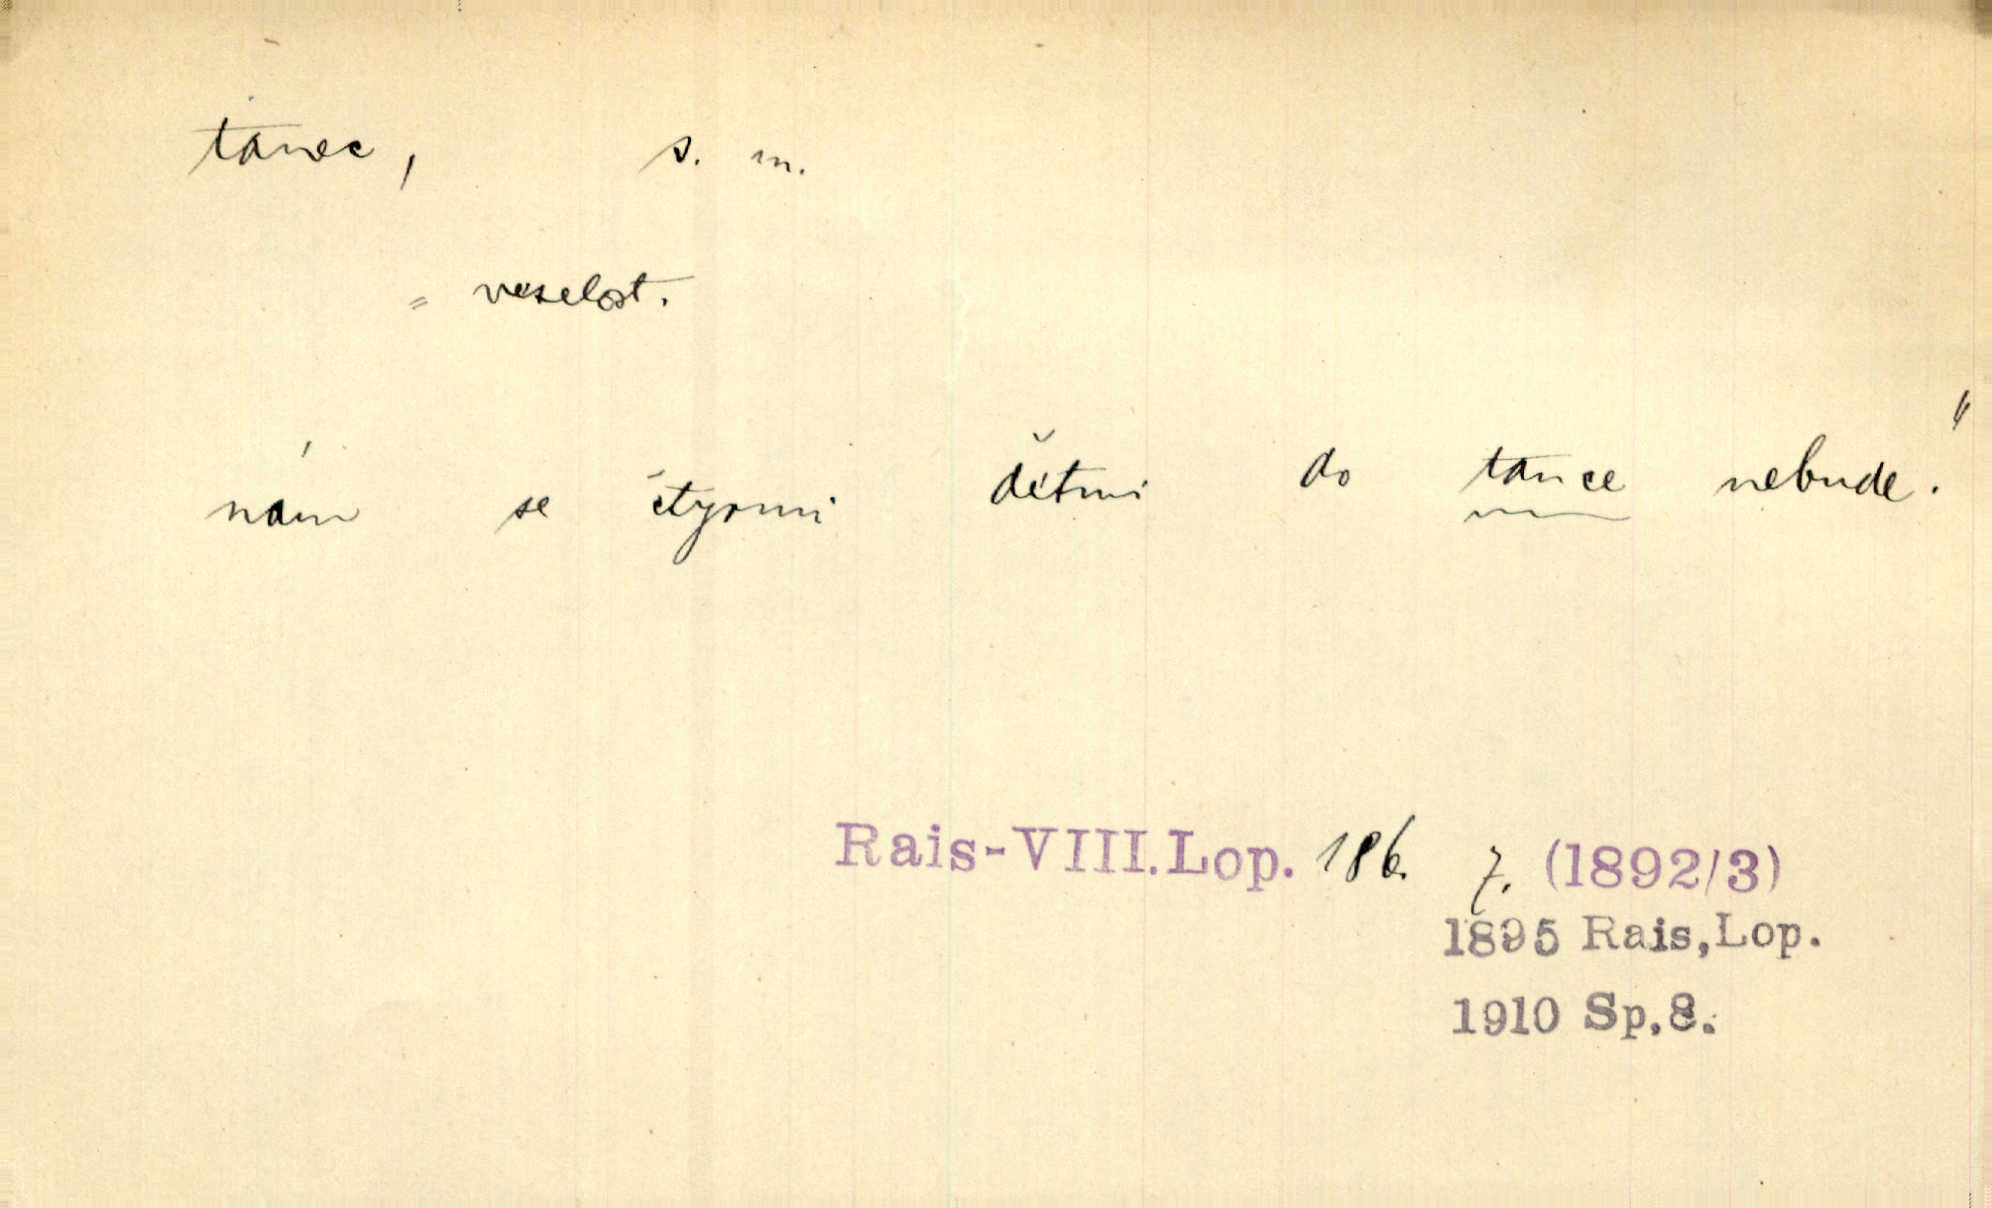 tanec, s. m.
= veselost.
nám se čtyrmi dětmi do tance nebude."
Rais-VIII.Lop. 186. 7. (1892/3)
1895 Rais,Lop.
1910 Sp.8.